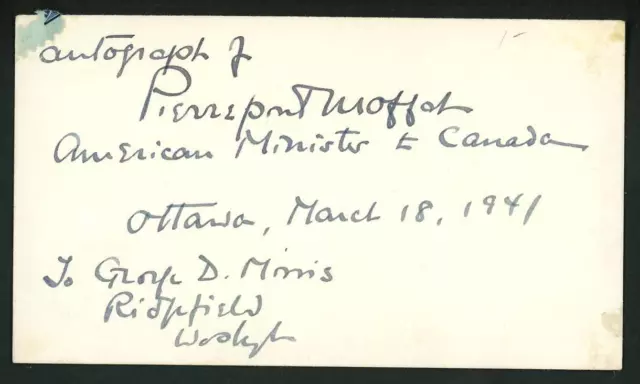 autograph of
Pierrepont Moffat
American Minister to Canada
Ottawa, March 18, 1941
To George D. Morris
Ridgefield